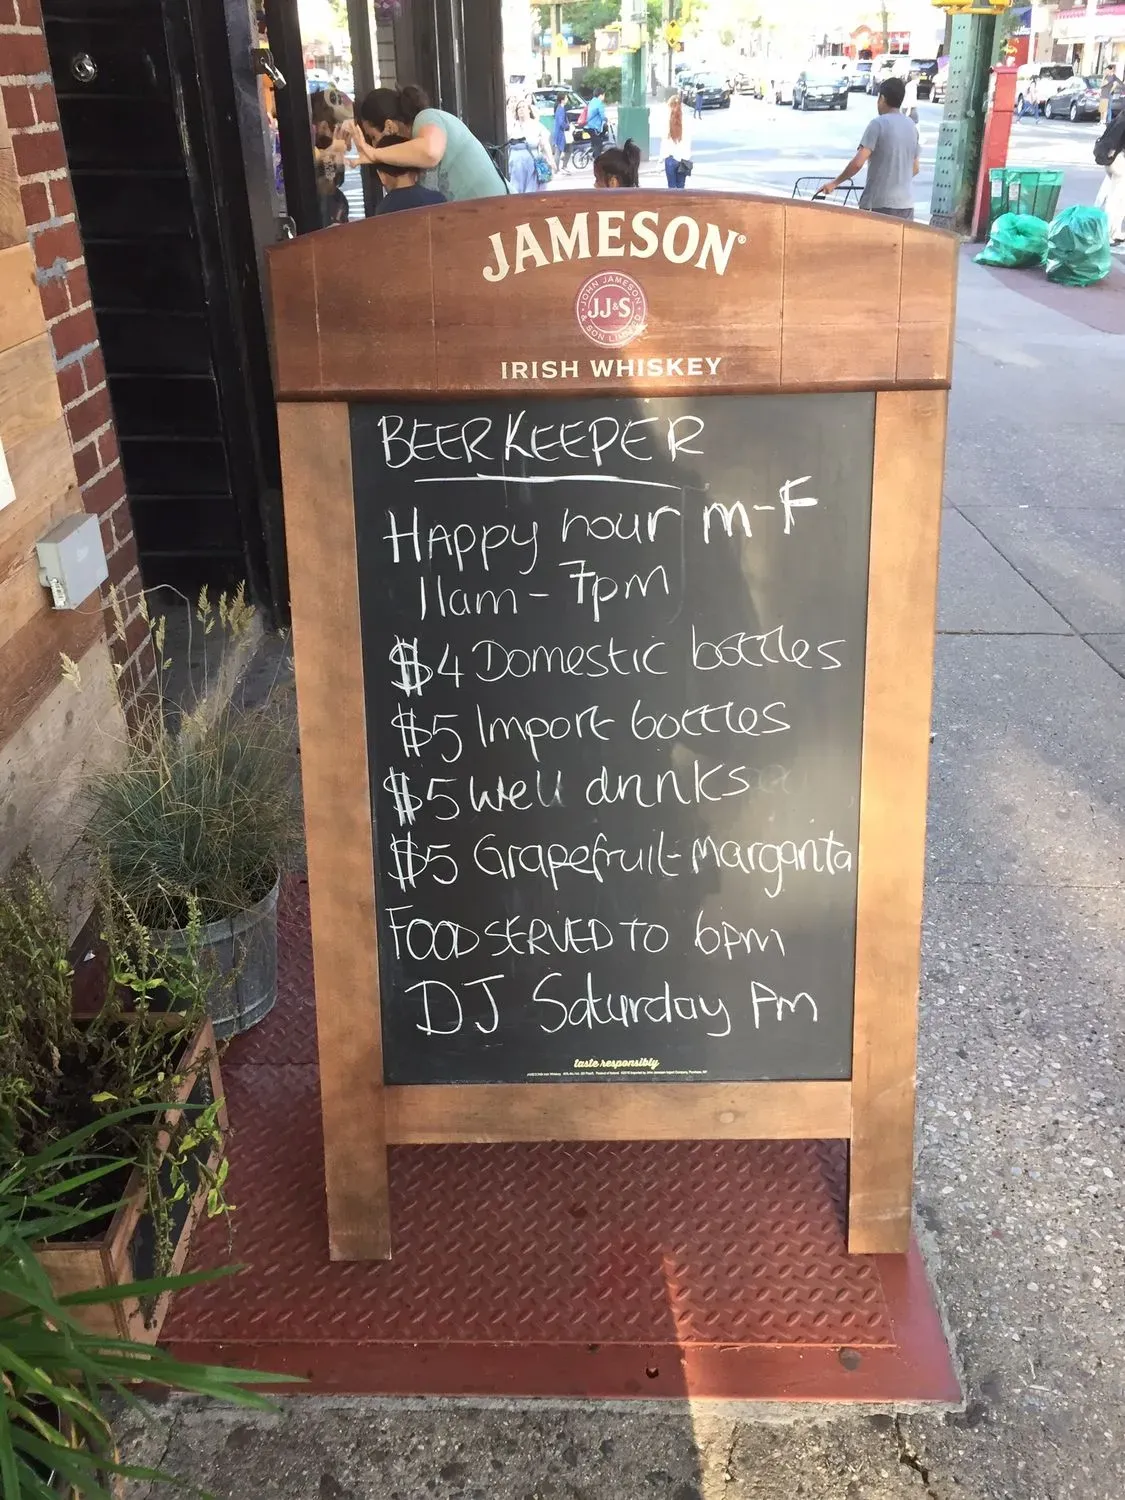 JAMESON®
JOHN JAMESON
JJ&S
& SON LIMITED
IRISH WHISKEY
BEER KEEPER
HAppy hour M-F
11am - 7pm
$4 Domestic bottles
$5 Import bottles
$5 Well drinks
$5 Grapefruit Margarita
FOOD SERVED TO 6pm
DJ Saturday Pm
taste responsibly